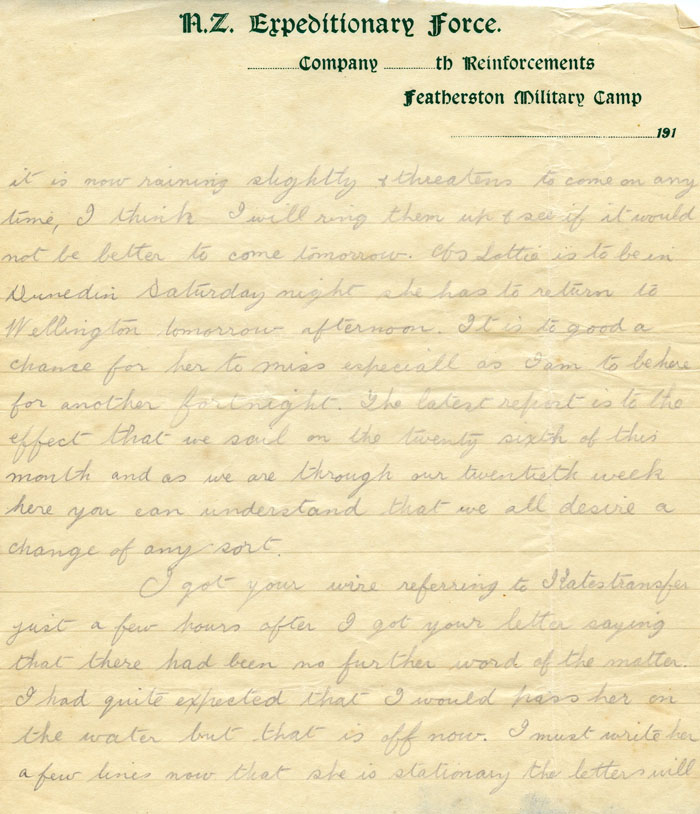 N.Z. Expeditionary Force.
............Company ............th Reinforcements
Featherston Military Camp
............191
it is now raining slightly & threatens to come on any
time, I think I will ring them up & see if it would
not be better to come tomorrow. As Lottie is to be in
Dunedin Saturday night she has to return to
Wellington tomorrow afternoon. It is to good a
chance for her to miss especiall as I am to be here
for another fortnight. The latest report is to the
effect that we sail on the twenty sixth of this
month and as we are through our twentieth week
here you can understand that we all desire a
change of any sort.
I got your wire referring to Kates transfer
just a few hours after I got your letter saying
that there had been no further word of the matter.
I had quite expected that I would pass her on
the water but that is off now. I must write her
a few lines now that she is stationary the letters will